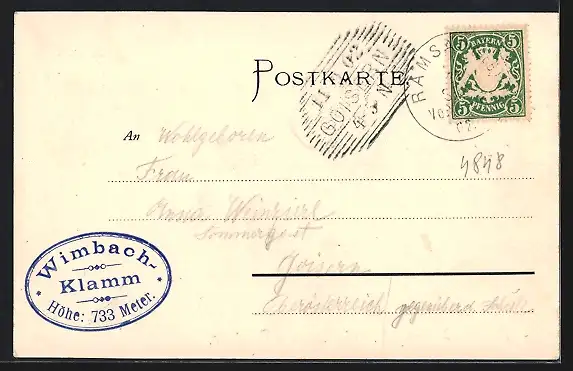 POSTKARTE
5 BAYERN 5
5 PFENNIG 5
RAMSA
02
11 02
GOISERN
An Wohlgeboren
Frau
Anna Weinzierl
Sommergast
Goisern
Oberösterreich gegenüber d.
4848
Wimbach-
Klamm
Höhe: 733 Meter.